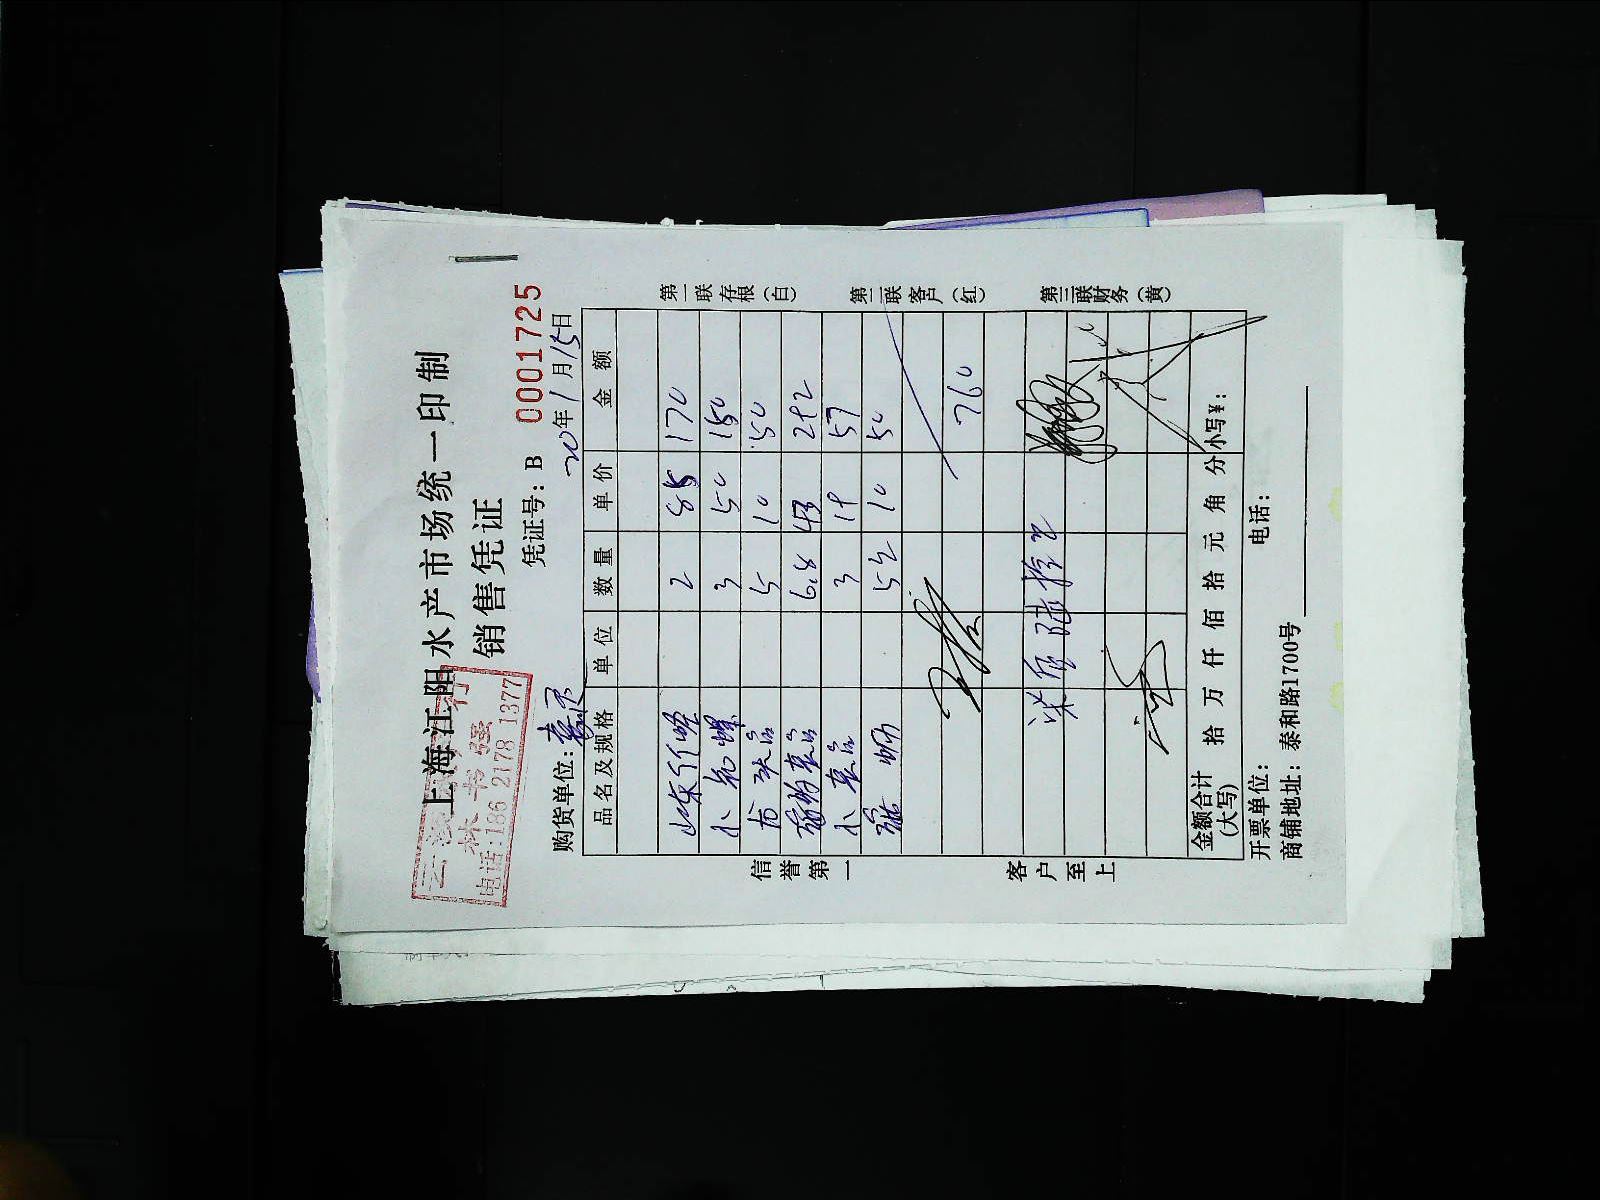 上海江阳水产市场统一印制
销售凭证
林书强
电话:186 2178 1377
凭证号: B 0001725
购货单位: 20年1月15日
品名及规格 单位 数量 单价 金额
2 85 170
小花螺 3 50 150
5 10 50
6.8 43 292
3 19 57
5 10 50
760
柒佰陆拾元
金额合计(大写) 拾 万 仟 佰 拾 元 角 分 小写¥:
开票单位: 电话:
商铺地址: 泰和路1700号
信誉第一
客户至上
第一联存根(白)
第二联客户(红)
第三联财务(黄)